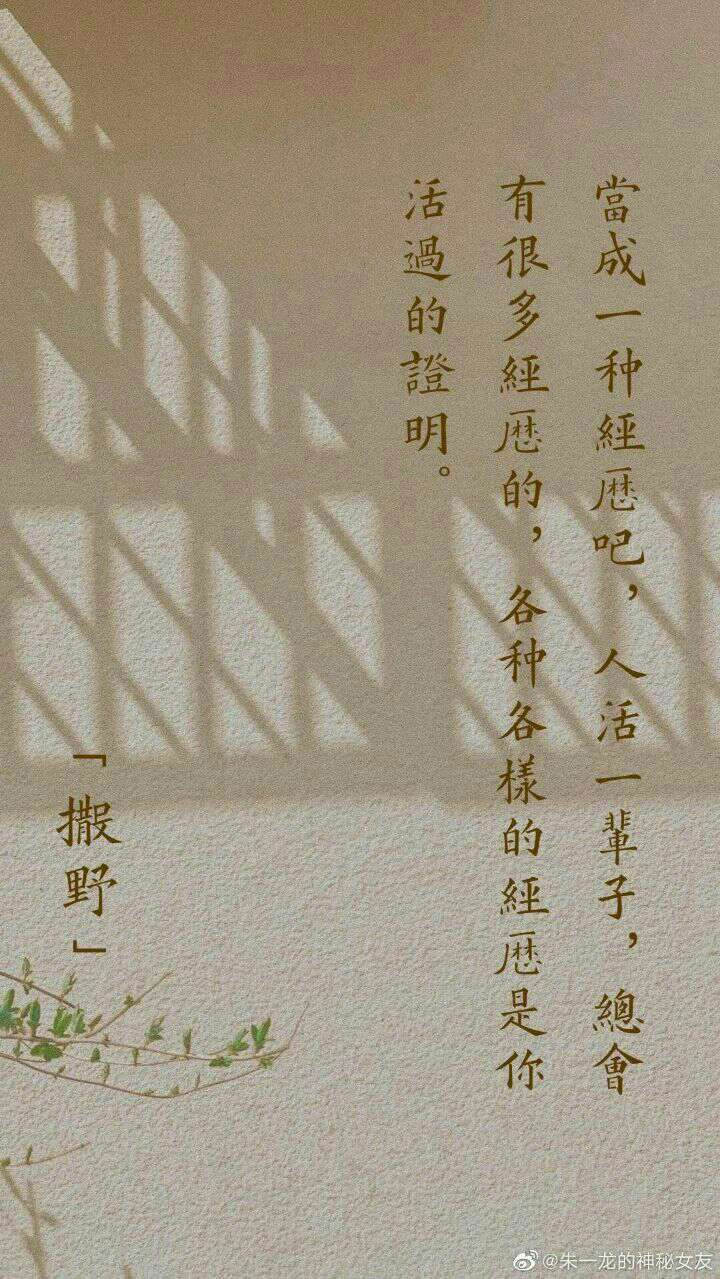 當成一种經歴吧，人活一輩子，總會
有很多經歴的，各种各樣的經歴是你
活過的證明。
「撒野」
@朱一龙的神秘女友